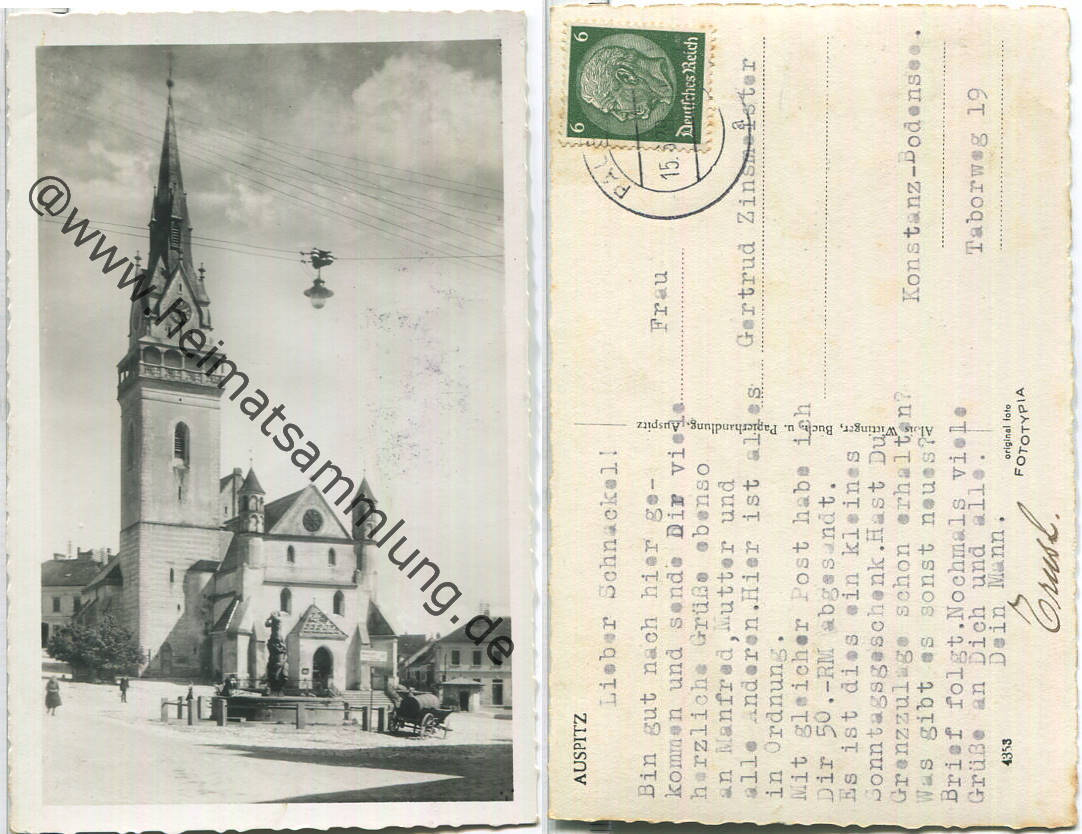 @www.heimatsammlung.de
AUSPITZ
Lieber Schnackel!
Bin gut nach hier ge-
kommen und sende Dir viele
herzliche Grüße ebenso
an Manfred,Mutter und
alle Anderen.Hier ist alles
in Ordnung.
Mit gleicher Post habe ich
Dir 50.-RM abgesandt.
Es ist dies ein kleines
Sonntagsgeschenk.Hast Du
Grenzzulage schon erhalten?
Was gibt es sonst neues?
Brief folgt.Nochmals viele
Grüße an Dich und alle.
Dein Mann.
Ernst.
4353
Alois Wirtinger, Buch- u. Papierhandlung, Auspitz
original foto
FOTOTYPIA
6 6
Deutsches Reich
15.5
Frau
Gertrud Zinsmeister
Konstanz-Bodensee.
Taborweg 19